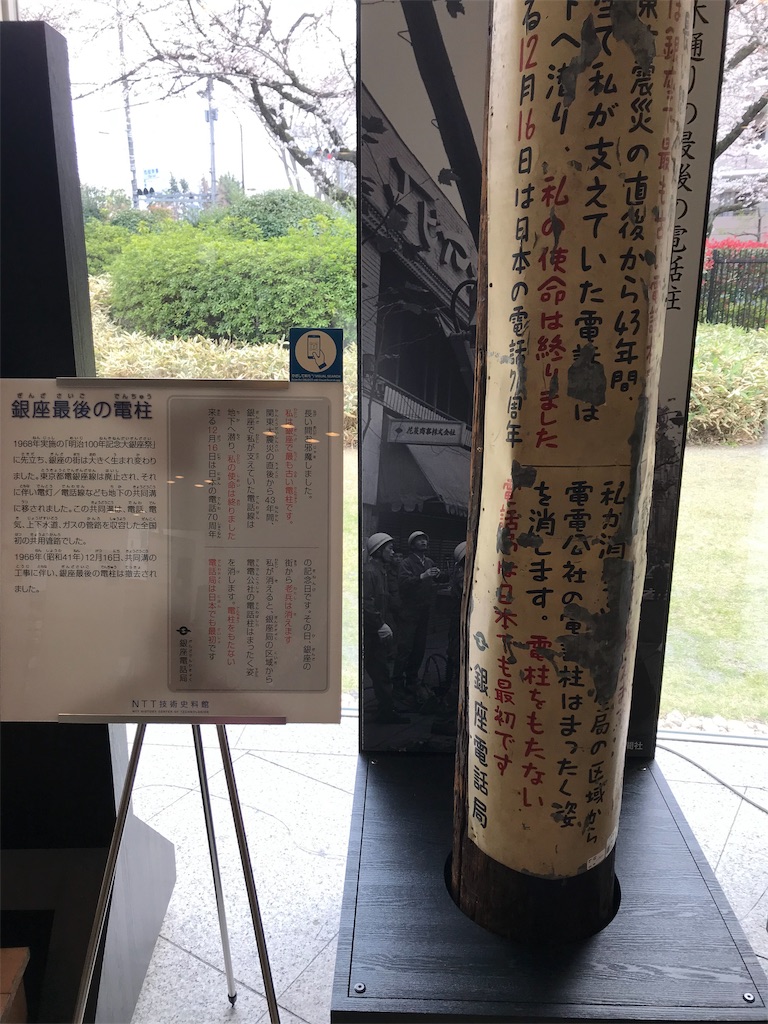 銀座最後の電柱
1968年実施の「明治100年記念大銀座祭」
に先立ち、銀座の街は大きく生まれ変わり
ました。東京都電銀座線は廃止され、それ
に伴い電灯/電話線なども地下の共同溝
に移されました。この共同溝は、電話、電
気、上下水道、ガスの管路を収容した全国
初の共用管路でした。
1966年(昭和41年)12月16日、共同溝の
工事に伴い、銀座最後の電柱は撤去され
ました。
長い間お邪魔しました。
私は銀座で最も古い電柱です。
関東大震災の直後から43年間、
銀座で私が支えていた電話線は
地下へ潜り、私の使命は終りました
来る12月16日は日本の電話70周年
の記念日です。その日、銀座の
街から老兵は消えます
私が消えると、銀座局の区域から
電電公社の電話柱はまったく姿
を消します。電柱をもたない
電話局は日本でも最初です
銀座電話局
NTT技術史料館
通りの最後の電話柱
震災の直後から43年間、
で私が支えていた電話は
下へ潜り、私の使命は終りました
る12月16日は日本の電話70周年
私が消
局の区域から
電電公社の電話柱はまったく姿
を消します。電柱をもたない
電話局は日本でも最初です
銀座電話局
尾張商事株式会社